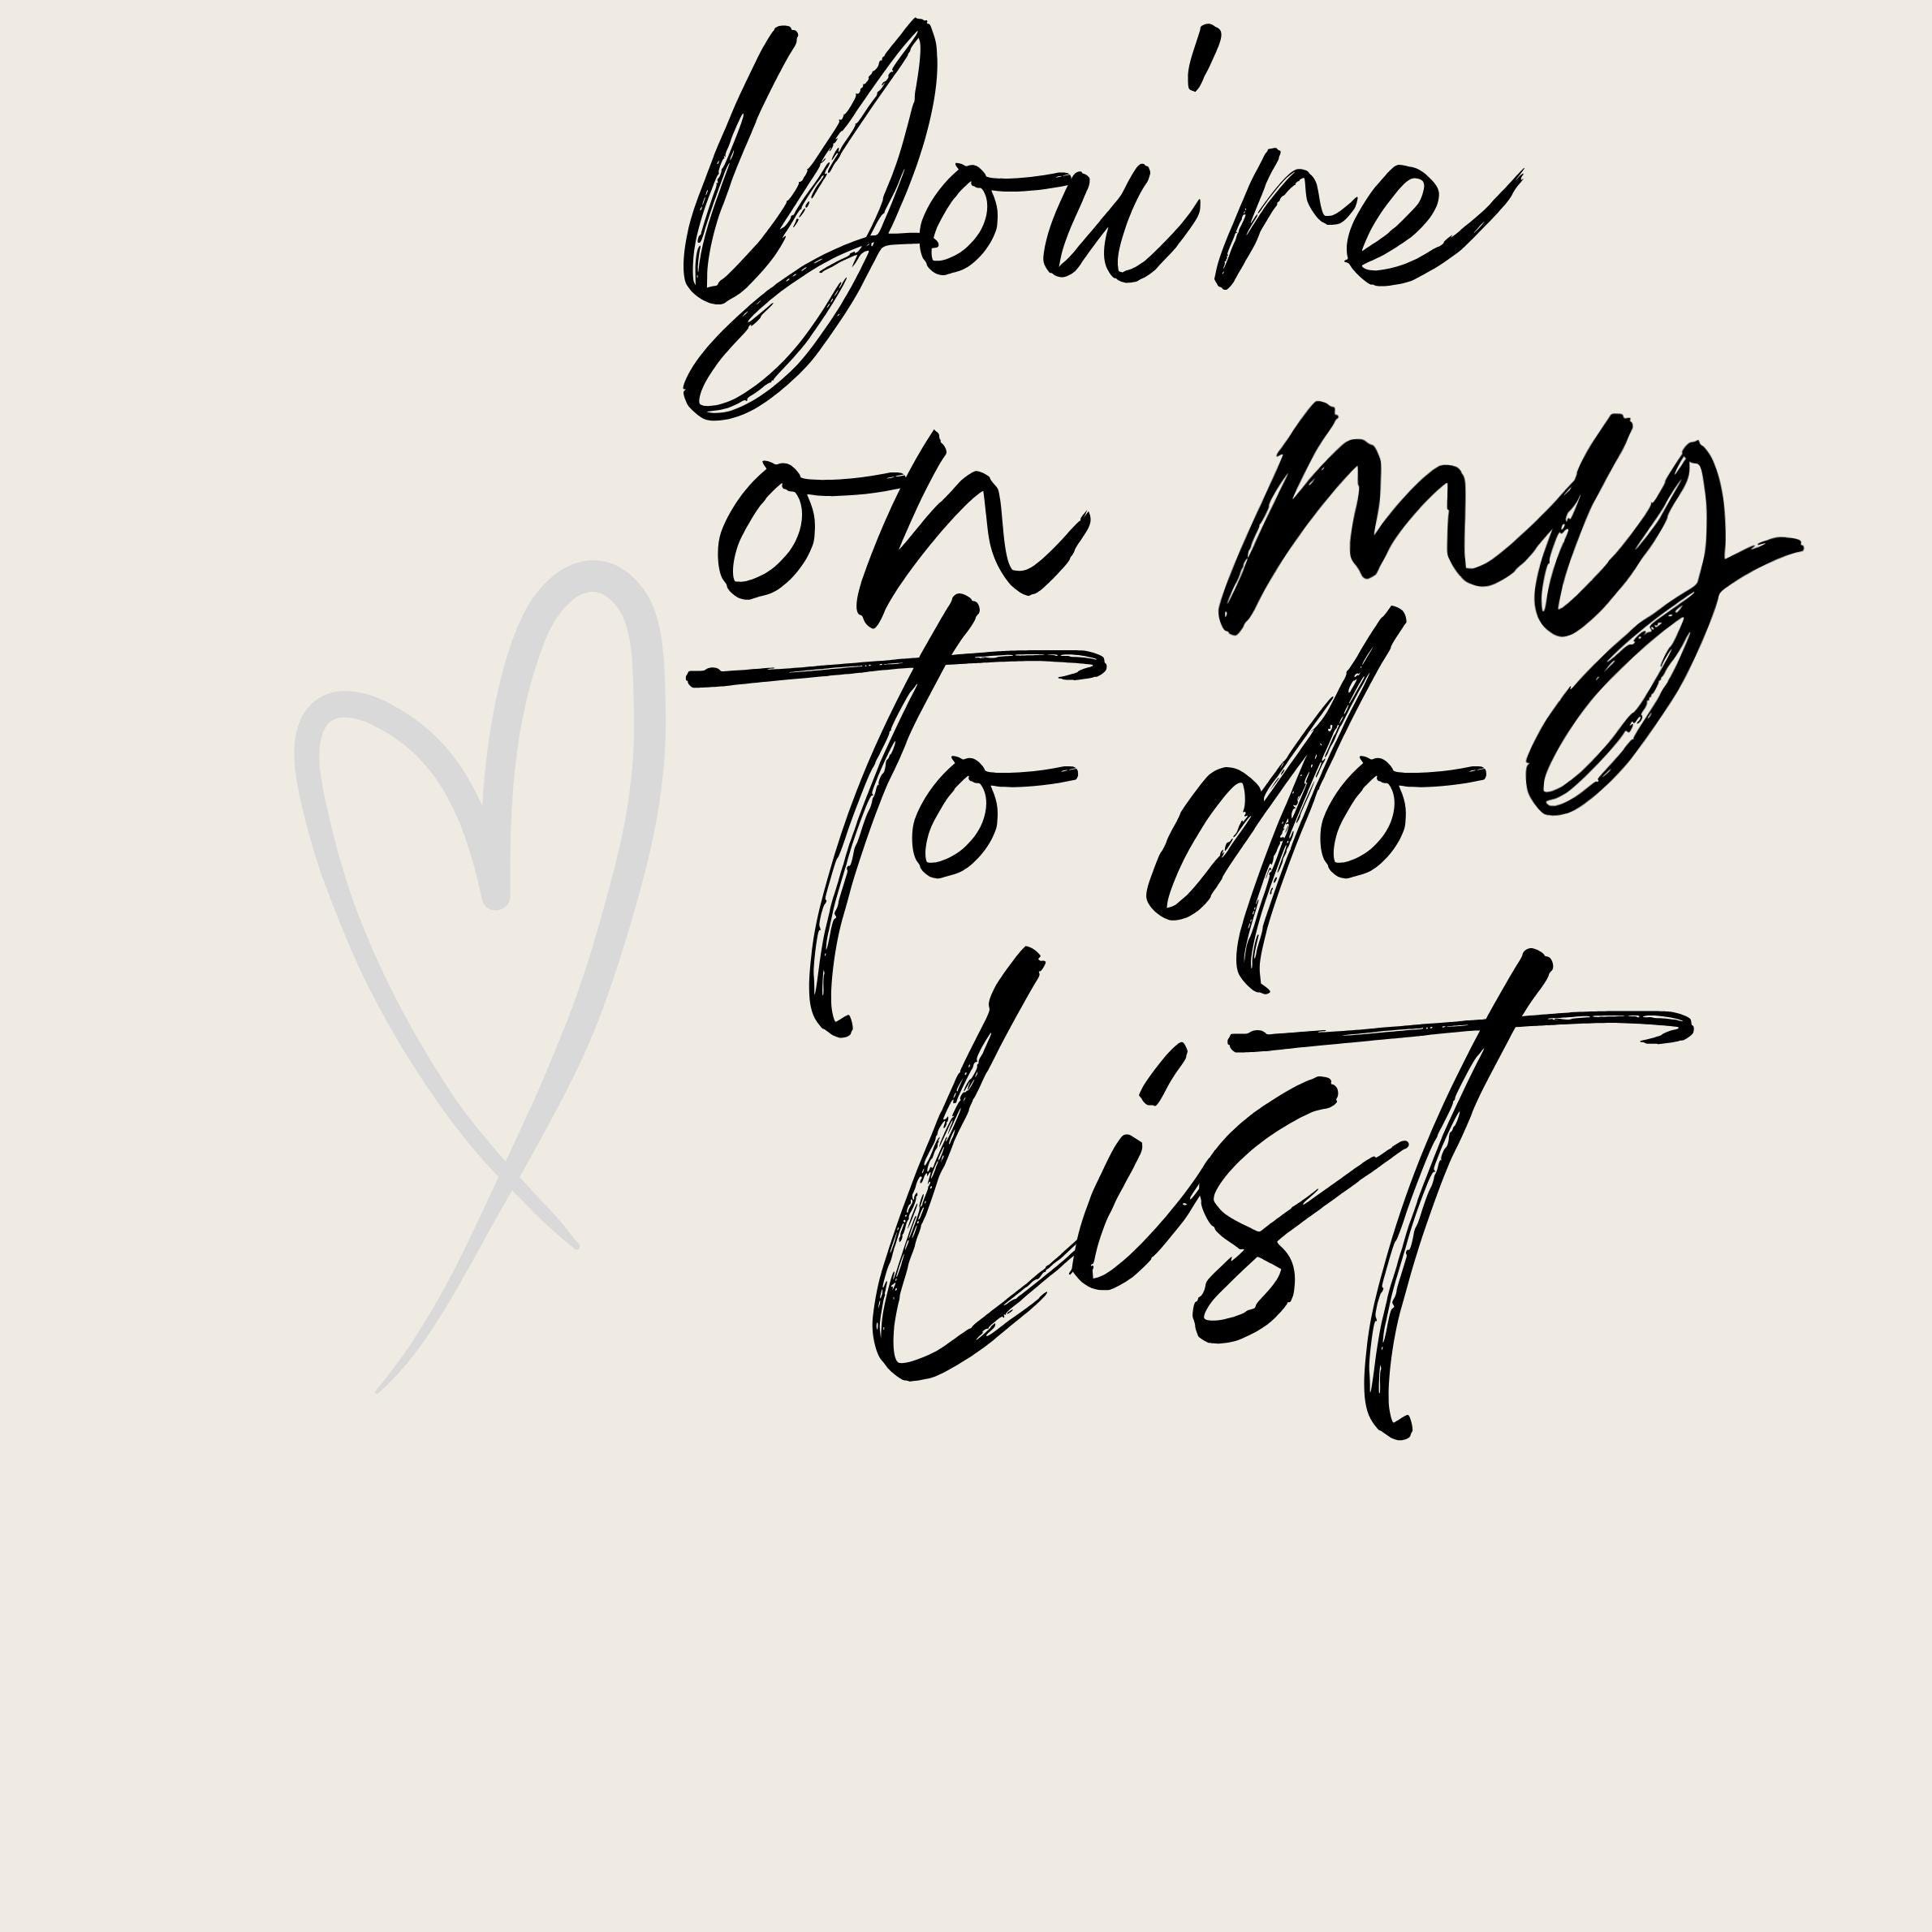 You're
on my
To do
List